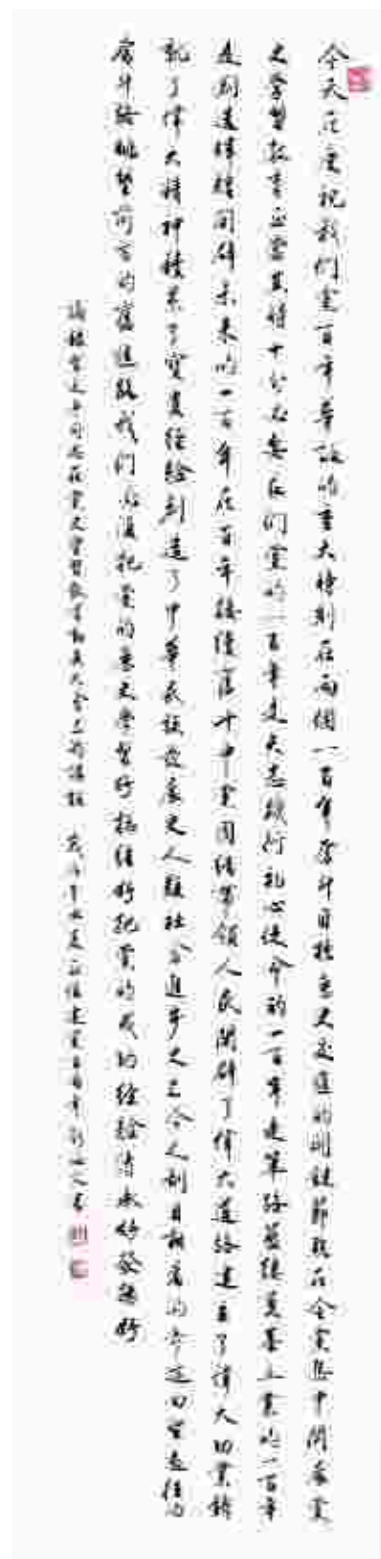 今天在庆祝我们党百年华诞的重大时刻在两个一百年奋斗目标历史交汇的关键节点在全党集中开展党
史学习教育正当其时十分必要我们党的一百年是矢志践行初心使命的一百年是筚路蓝缕奠基立业的一百年
是创造辉煌开辟未来的一百年在百年接续奋斗中党团结带领人民开辟了伟大道路建立了伟大功业铸
就了伟大精神积累了宝贵经验创造了中华民族发展史人类社会进步史上令人刮目相看的奇迹回望过往的
奋斗路眺望前方的奋进路我们必须把党的历史学习好总结好把党的成功经验传承好发扬好
同志在党史学习教育动员大会上的讲话